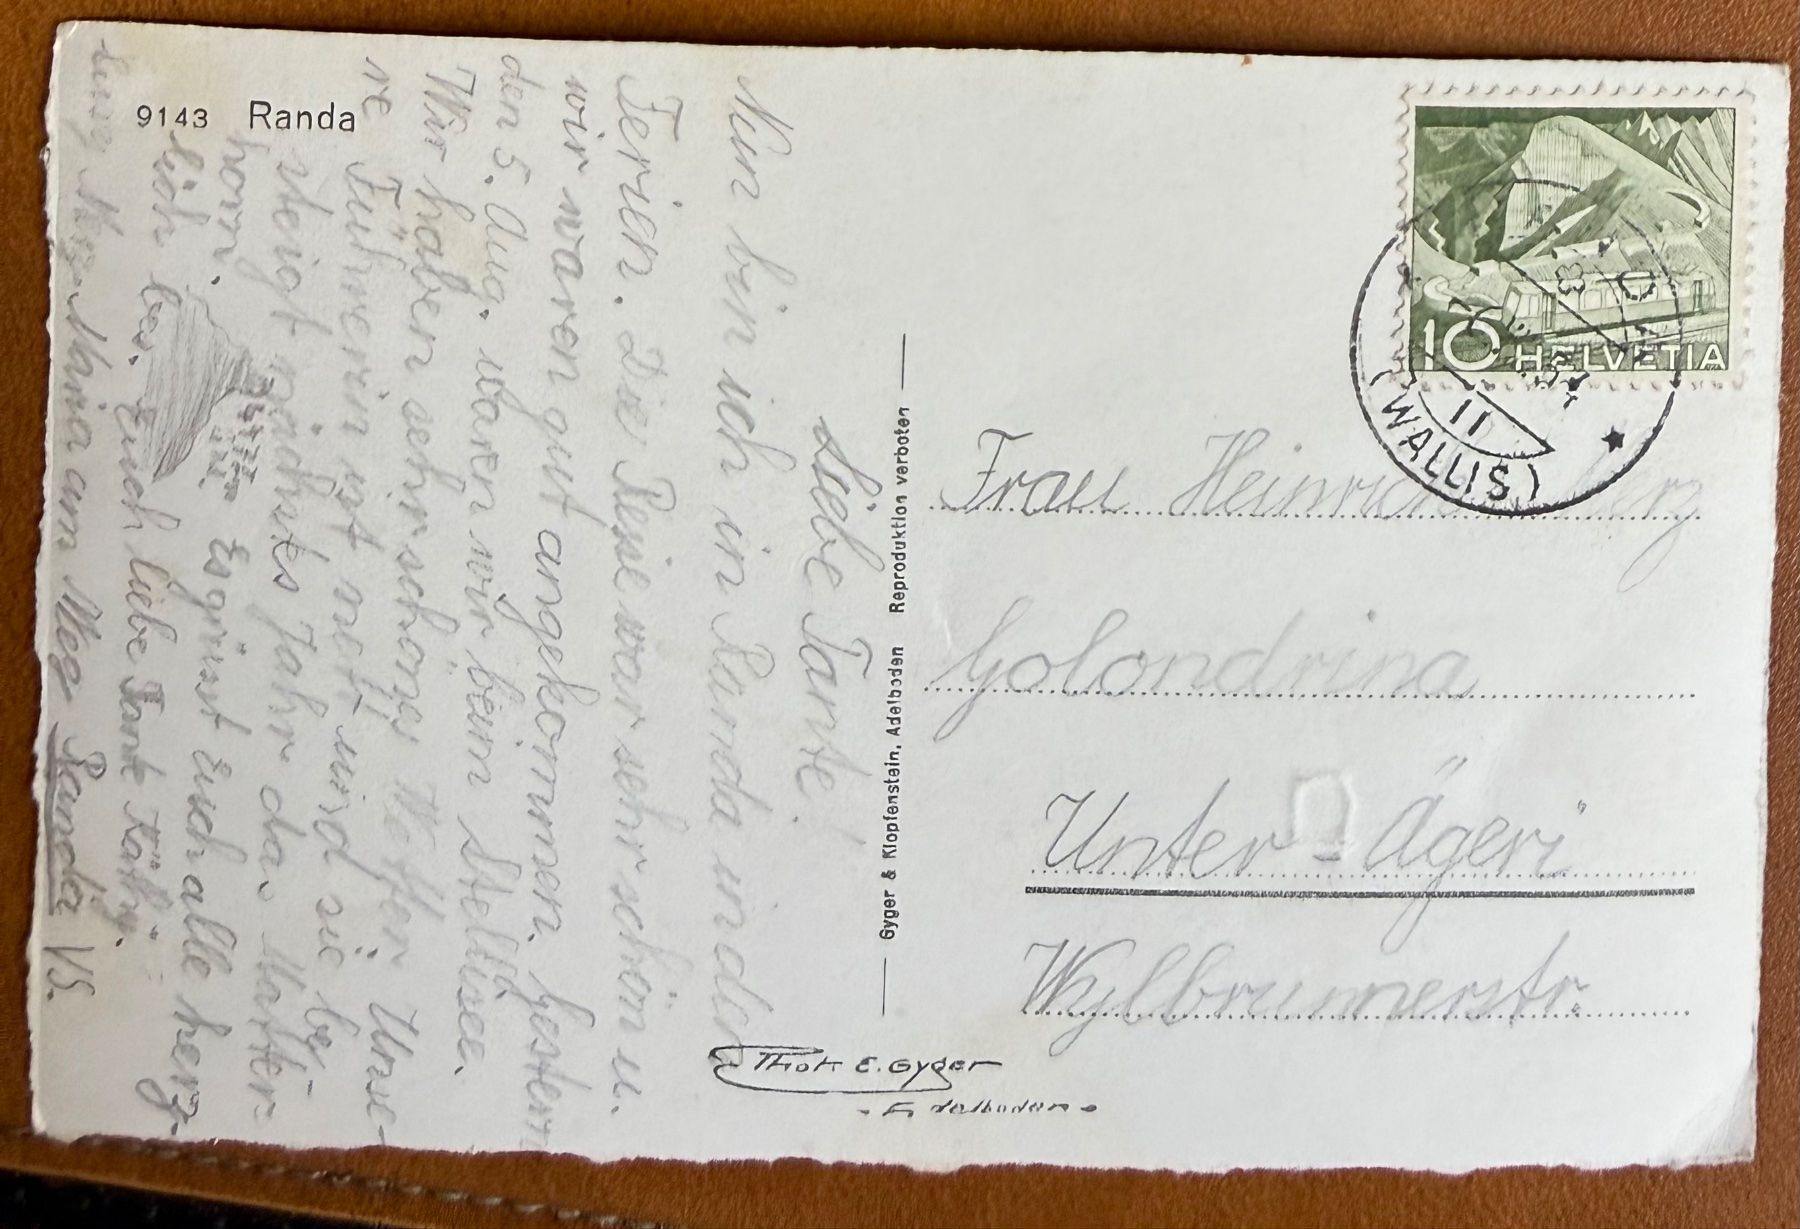 9143 Randa
Liebe Tante!
Nun bin ich in Randa in den
Ferien. Die Reise war sehr schön u.
wir waren gut angekommen. Gestern
den 5. Aug. waren wir beim Stellisee.
Wir haben sehr schönes Wetter. Unse-
re Führerin ist nett wird sie be-
steigt nächstes Jahr das Matter-
horn.
Es grüsst Euch alle herz-
lich
Euch liebe Tante Käthy.
am Weg Randa VS.
Gyger & Klopfenstein, Adelboden Reproduktion verboten
Phot. E. Gyger
- Adelboden -
10 HELVETIA
11
(WALLIS)
Frau Heinrich
Golondrina
Unter-Ägeri
Wylbrunnerstr.